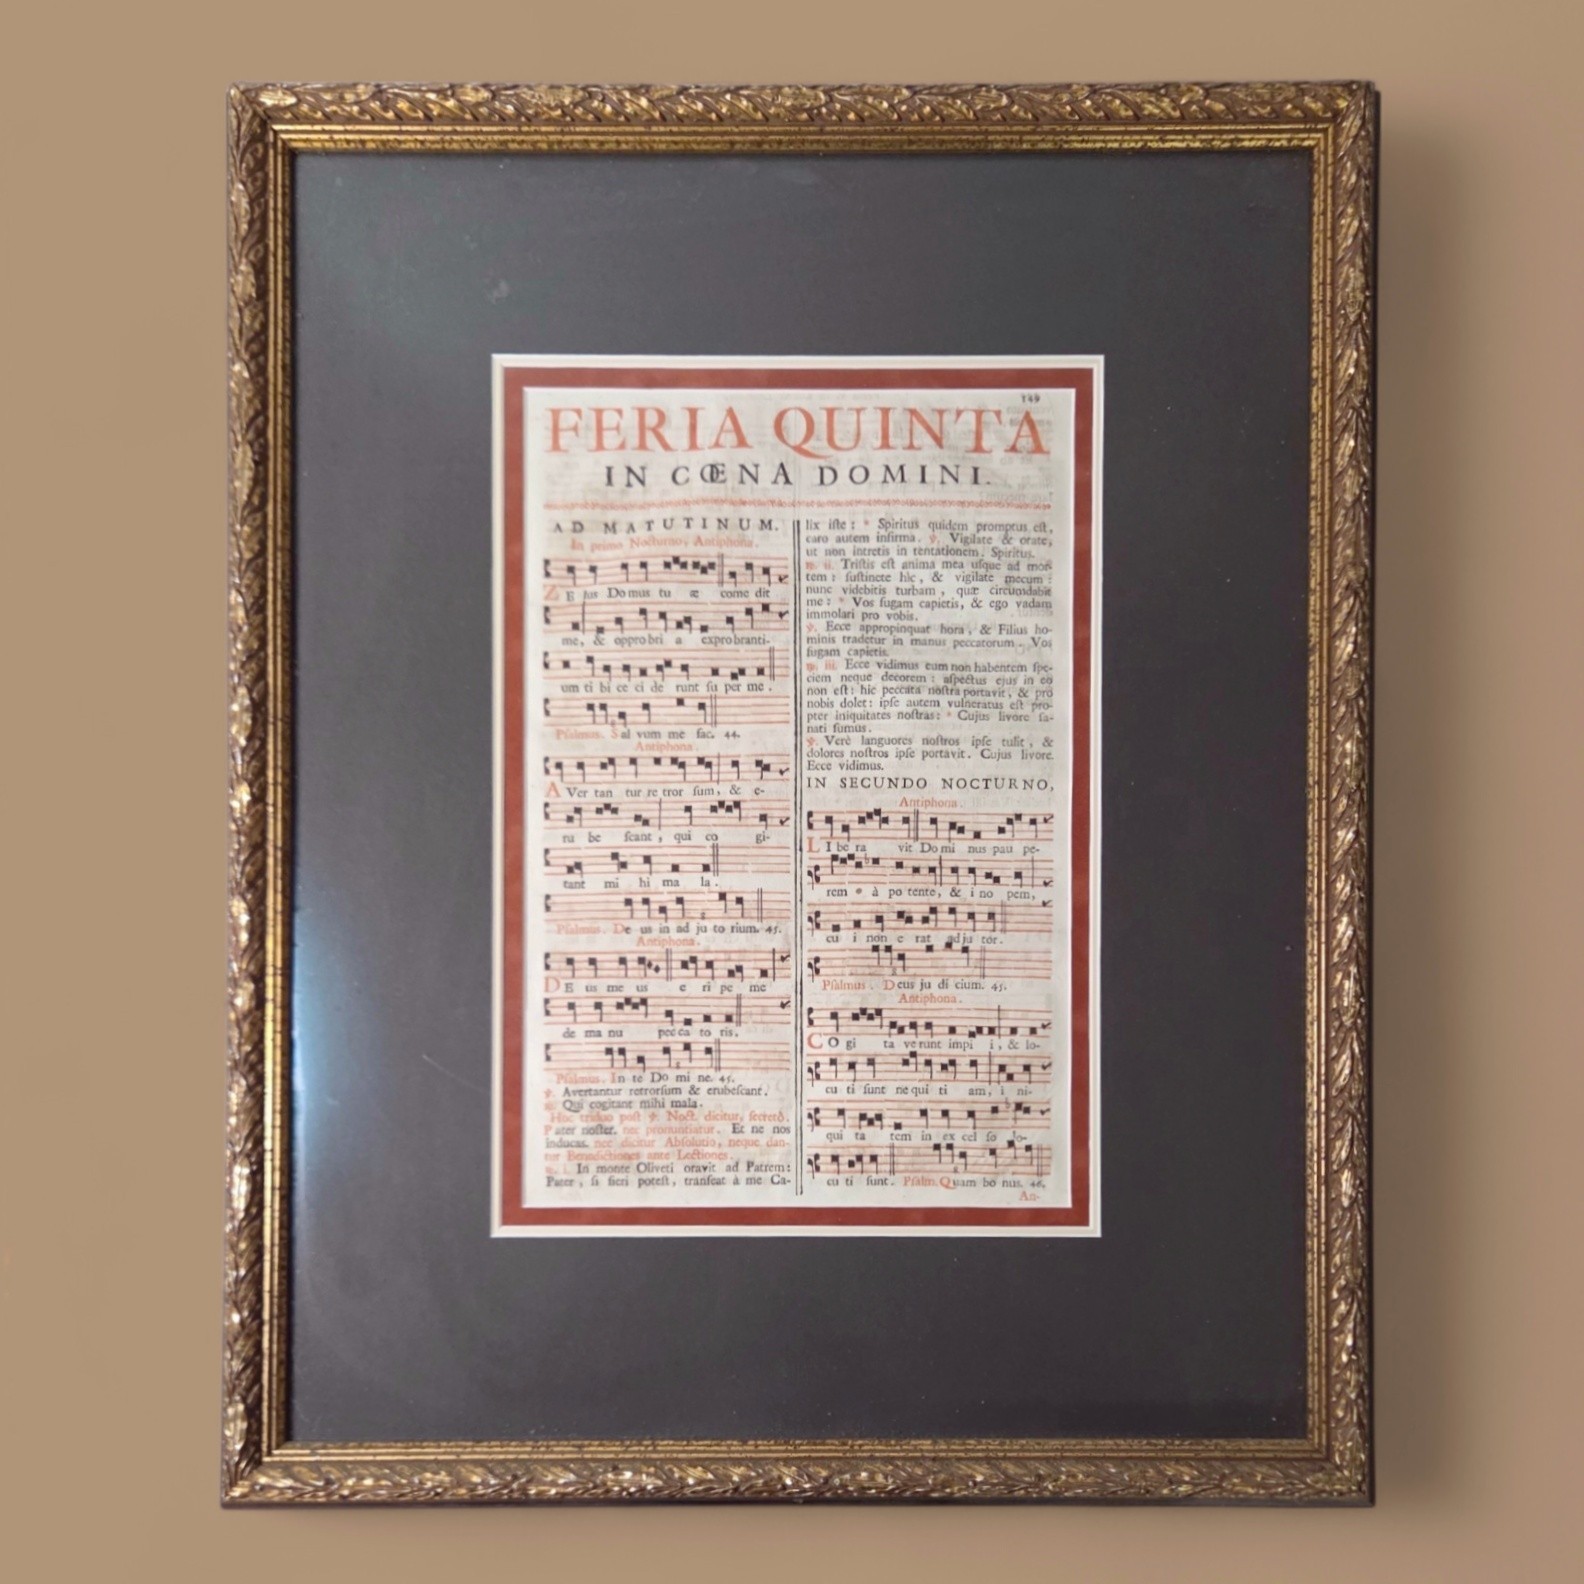 149
FERIA QUINTA
IN CŒNA DOMINI.
AD MATUTINUM.
In primo Nocturno, Antiphona.
ZE lus Domus tu æ come dit
me, & oppro bri a exprobranti-
um ti bi ce ci de runt ſu per me.
Pſalmus. Sal vum me fac. 44.
Antiphona.
AVer tan tur re tror ſum, & e-
ru be ſcant, qui co gi-
tant mi hi ma la.
Pſalmus. De us in ad ju to rium. 45.
Antiphona.
DE us me us e ri pe me
de ma nu pecca to ris.
Pſalmus. In te Do mi ne. 45.
℣. Avertantur retrorſum & erubeſcant.
℟. Qui cogitant mihi mala.
Hoc triduo poſt ℣. Noct. dicitur, ſecretò,
Pater noſter. nec pronuntiatur. Et ne nos
inducas. nec dicitur Abſolutio, neque dan-
tur Benedictiones ante Lectiones.
℟. i. In monte Oliveti oravit ad Patrem:
Pater, ſi fieri poteſt, tranſeat à me Ca-
lix iſte: * Spiritus quidem promptus eſt,
caro autem infirma. ℣. Vigilate & orate,
ut non intretis in tentationem. Spiritus.
℟. ii. Triſtis eſt anima mea uſque ad mor-
tem: ſuſtinete hîc, & vigilate mecum:
nunc videbitis turbam, quæ circumdabit
me: * Vos fugam capietis, & ego vadam
immolari pro vobis.
℣. Ecce appropinquat hora, & Filius ho-
minis tradetur in manus peccatorum. Vos
fugam capietis.
℟. iii. Ecce vidimus eum non habentem ſpe-
ciem neque decorem: aſpectus ejus in eo
non eſt: hic peccata noſtra portavit, & pro
nobis dolet: ipſe autem vulneratus eſt pro-
pter iniquitates noſtras: * Cujus livore ſa-
nati ſumus.
℣. Verè languores noſtros ipſe tulit, &
dolores noſtros ipſe portavit. Cujus livore.
Ecce vidimus.
IN SECUNDO NOCTURNO,
Antiphona.
LI be ra vit Do mi nus pau pe-
rem * à po tente, & i no pem,
cu i non e rat ad ju tor.
Pſalmus. Deus ju di cium. 45.
Antiphona.
CO gi ta ve runt impi i, & lo-
cu ti ſunt ne qui ti am, i ni-
qui ta tem in ex cel ſo lo-
cu ti ſunt. Pſalm. Quam bo nus. 46.
An-